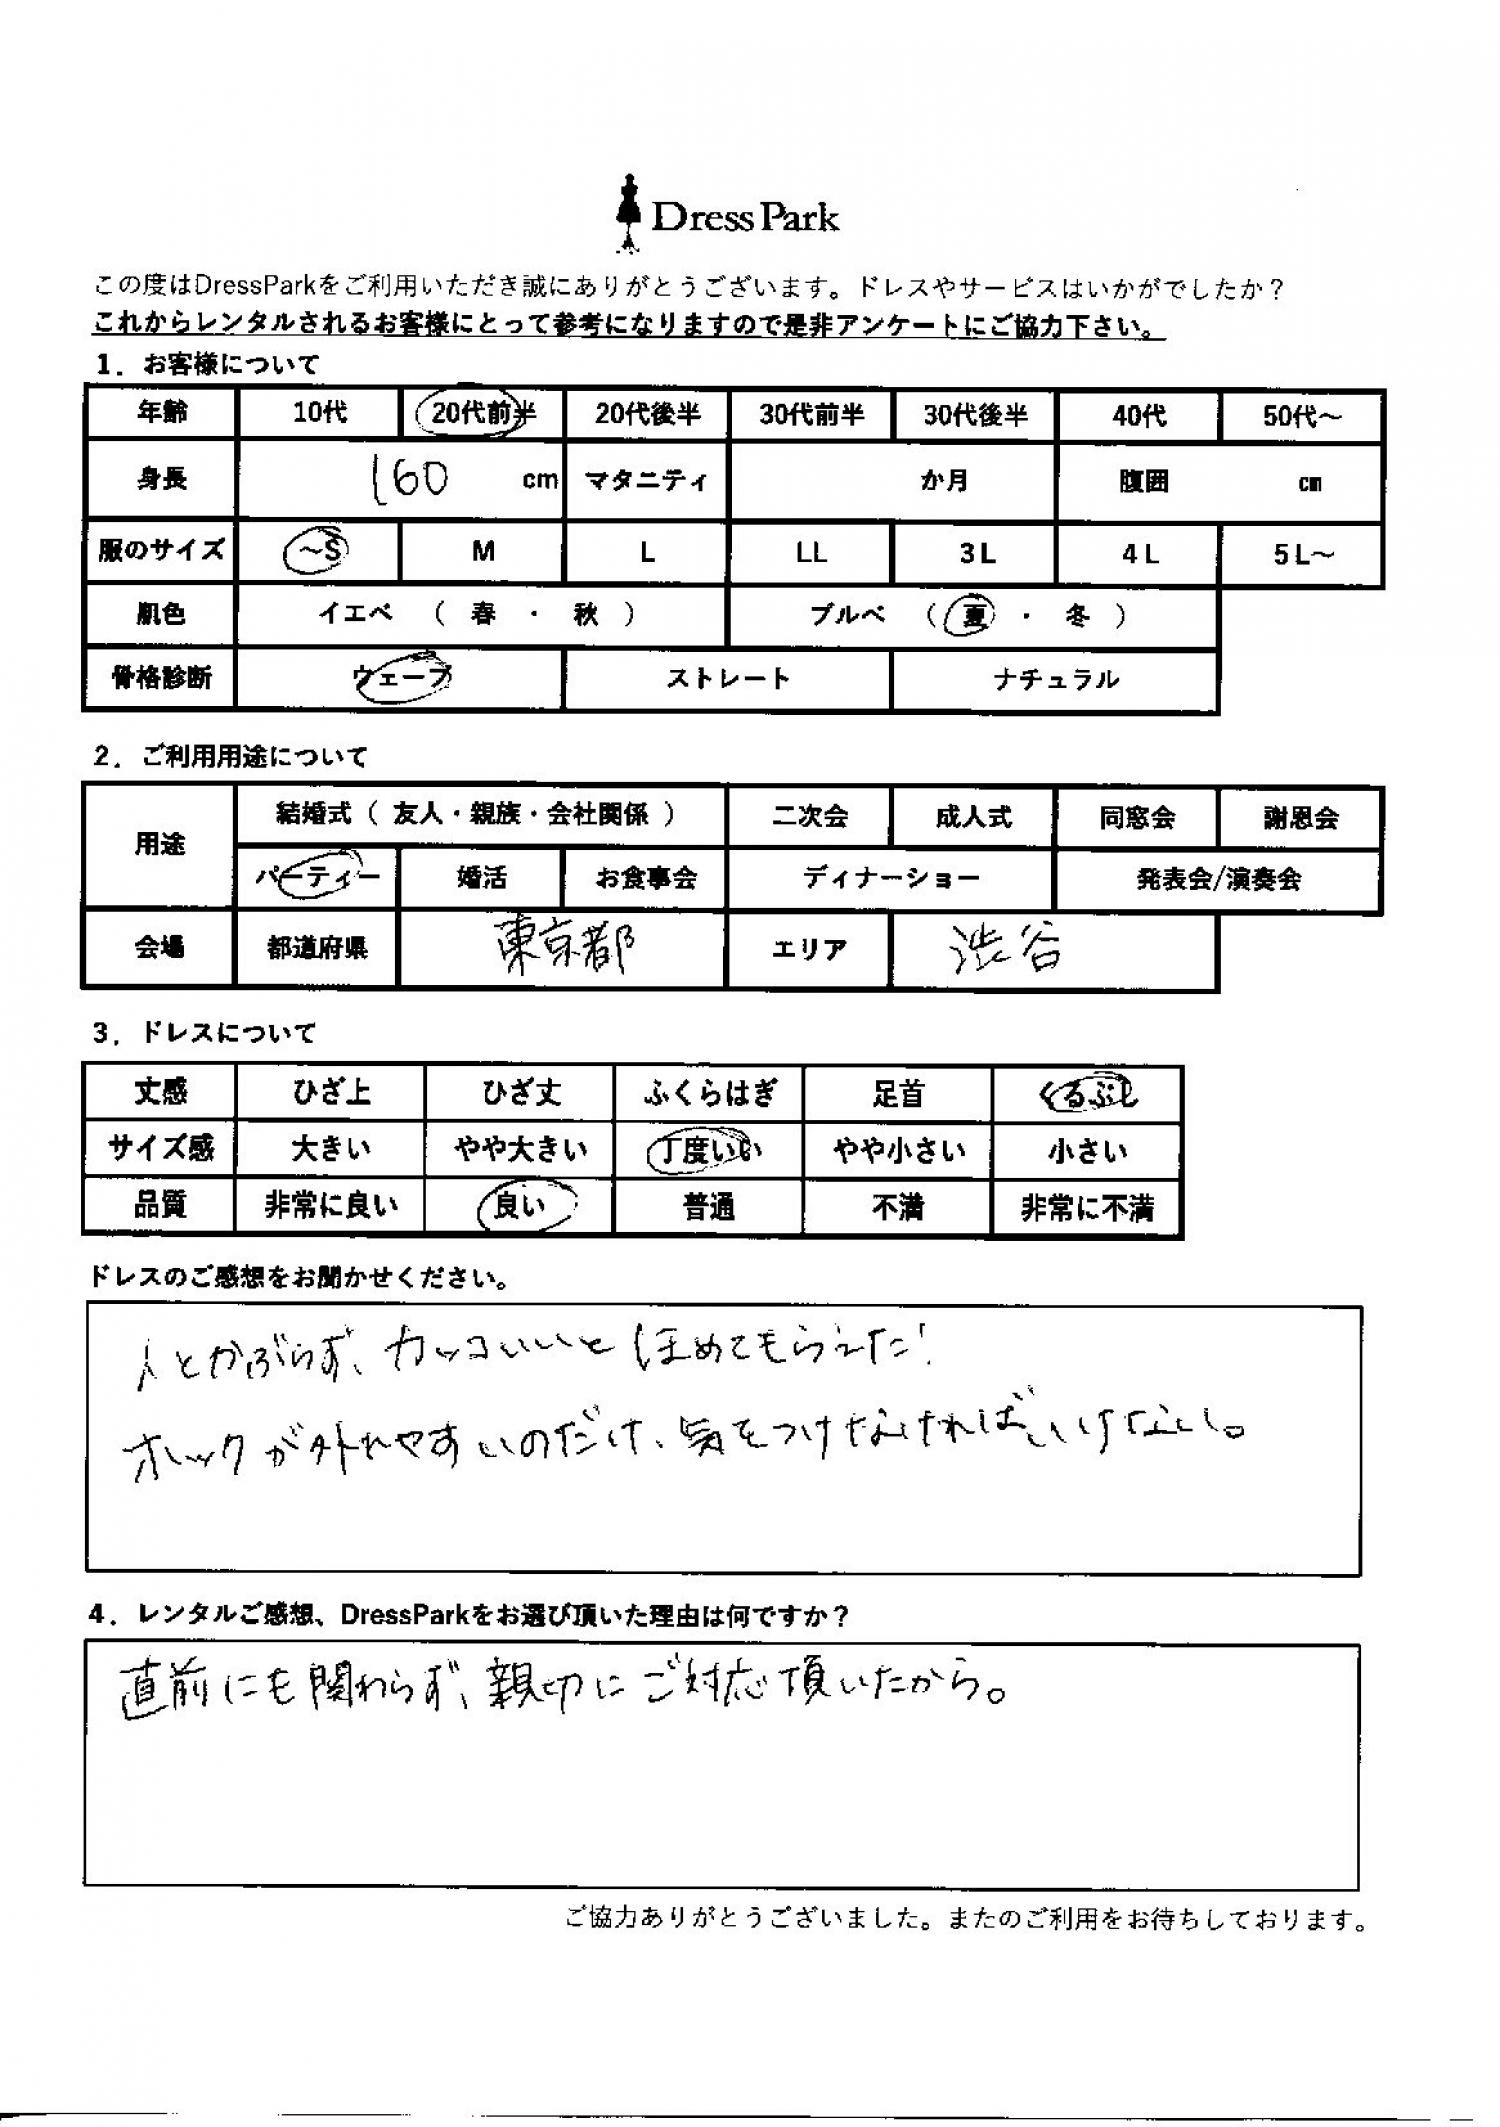 Dress Park
この度はDressParkをご利用いただき誠にありがとうございます。ドレスやサービスはいかがでしたか？
これからレンタルされるお客様にとって参考になりますので是非アンケートにご協力下さい。
1．お客様について
年齢 10代 20代前半 20代後半 30代前半 30代後半 40代 50代～
身長 160 cm マタニティ か月 腹囲 cm
服のサイズ ～S M L LL 3L 4L 5L～
肌色 イエベ （ 春 ・ 秋 ） ブルベ （ 夏 ・ 冬 ）
骨格診断 ウェーブ ストレート ナチュラル
2．ご利用用途について
用途 結婚式（ 友人・親族・会社関係 ） 二次会 成人式 同窓会 謝恩会
パーティー 婚活 お食事会 ディナーショー 発表会/演奏会
会場 都道府県 東京都 エリア 渋谷
3．ドレスについて
丈感 ひざ上 ひざ丈 ふくらはぎ 足首 くるぶし
サイズ感 大きい やや大きい 丁度いい やや小さい 小さい
品質 非常に良い 良い 普通 不満 非常に不満
ドレスのご感想をお聞かせください。
人とかぶらず、カッコいいとほめてもらえた！
ホックが外れやすいのだけ、気をつけなければいけない。
4．レンタルご感想、DressParkをお選び頂いた理由は何ですか？
直前にも関わらず、親切にご対応頂いたから。
ご協力ありがとうございました。またのご利用をお待ちしております。